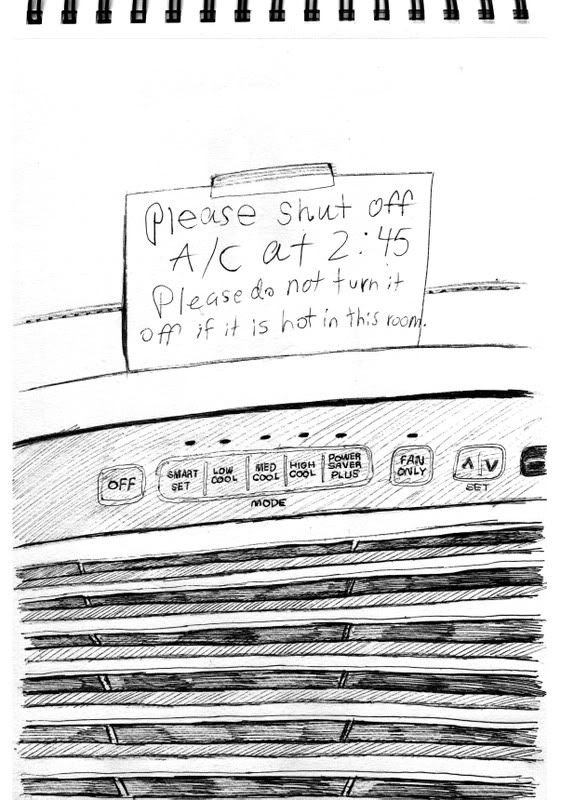 Please shut off
A/C at 2:45
Please do not turn it
off if it is hot in this room.
OFF
SMART SET
LOW COOL
MED COOL
HIGH COOL
POWER SAVER PLUS
FAN ONLY
MODE
SET